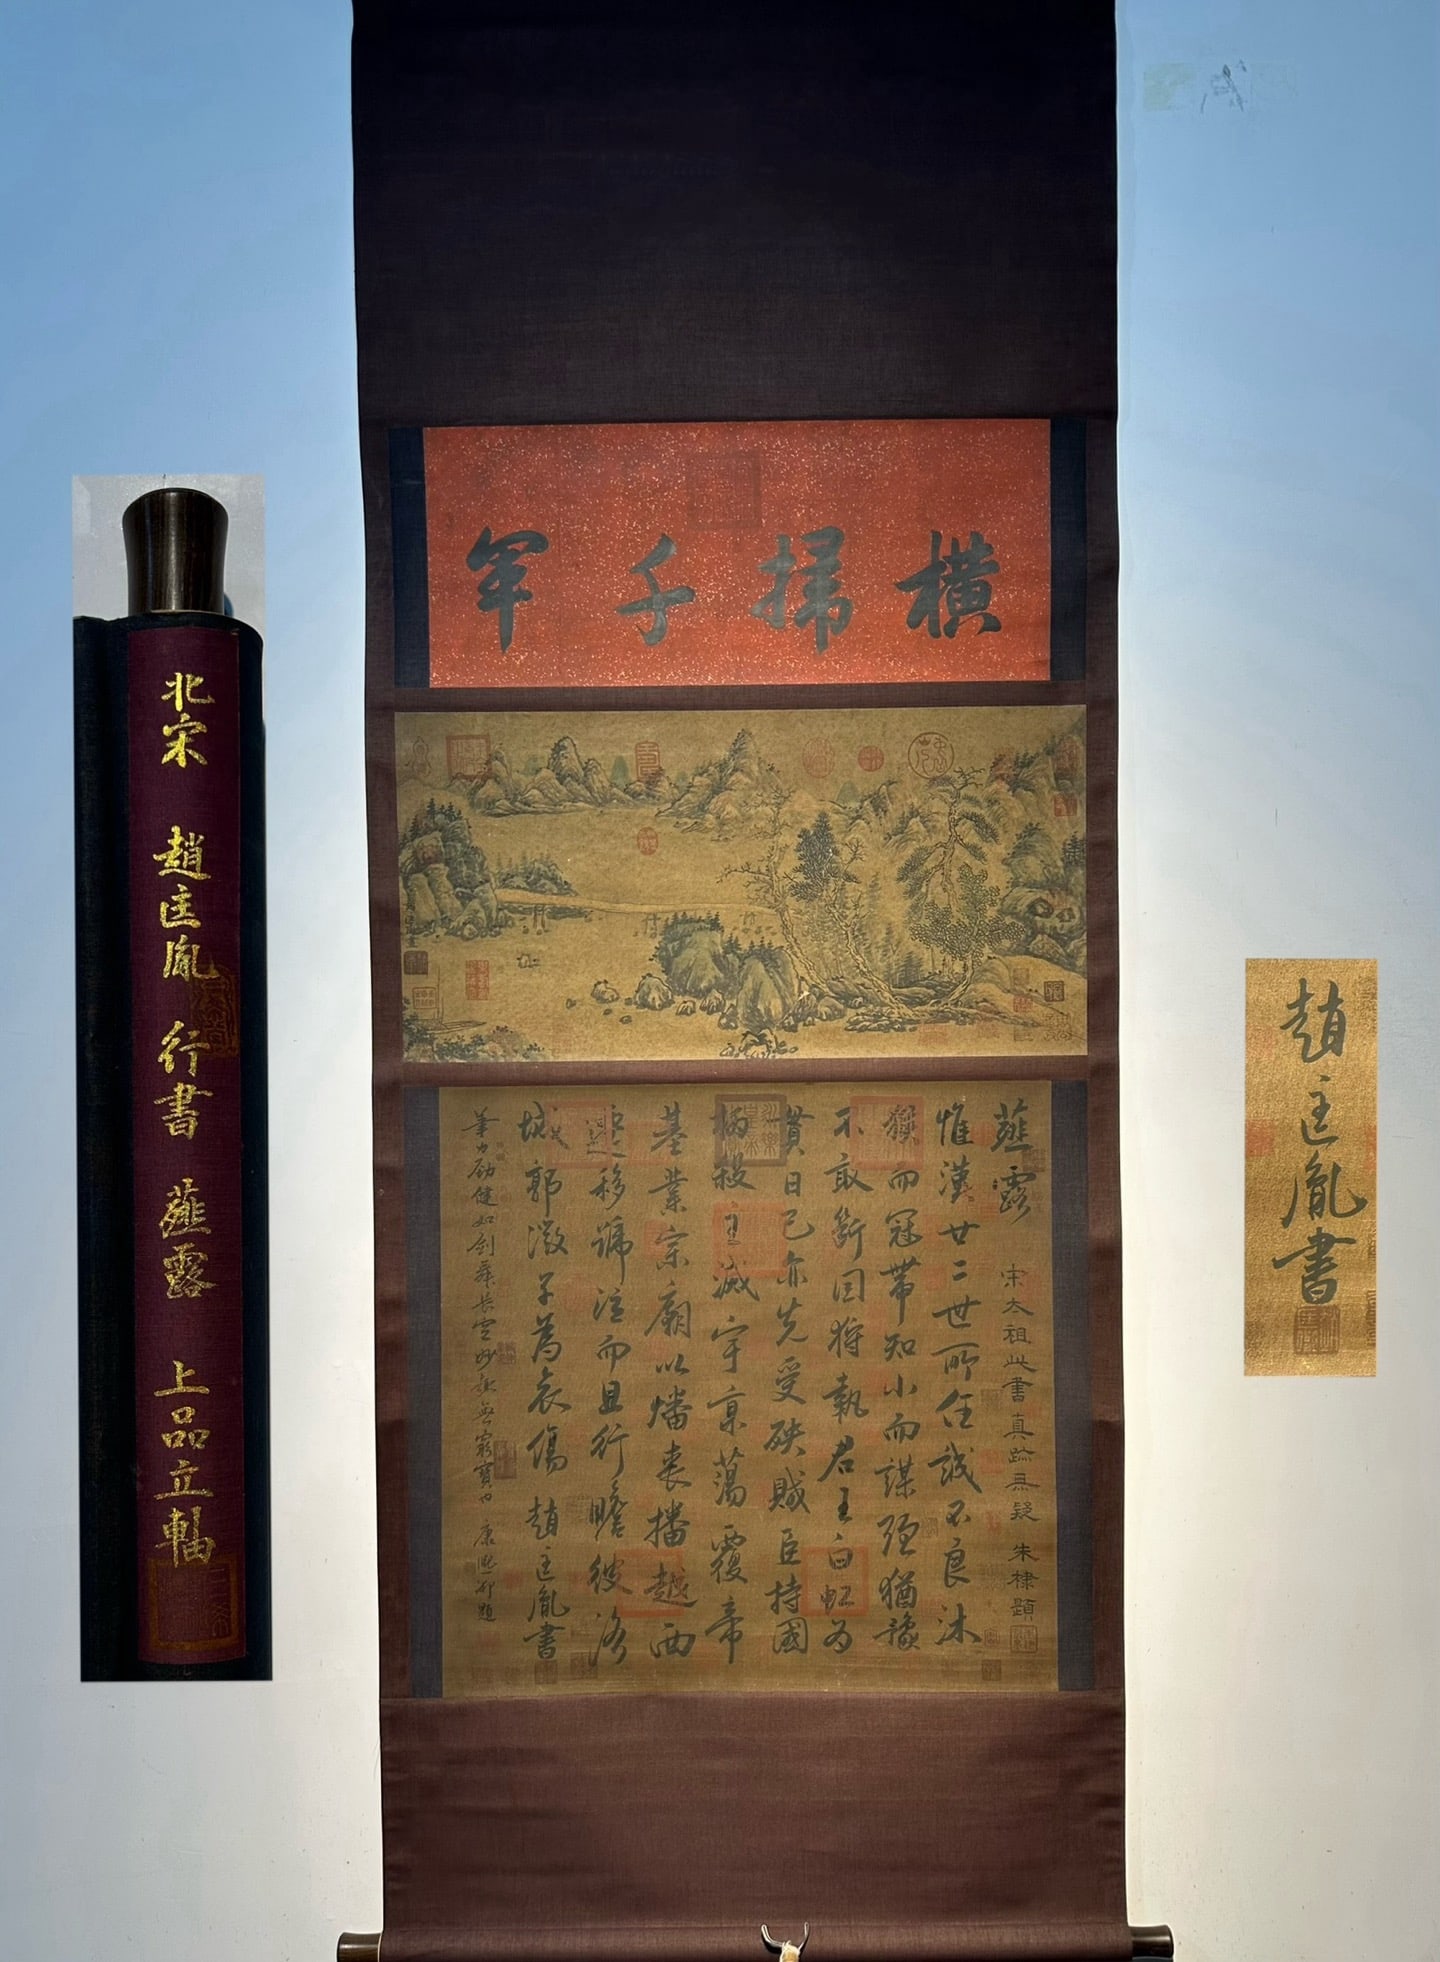 北宋 趙匡胤 行書 薤露 上品立軸
橫掃千軍
薤露
宋太祖此書真跡無疑 朱棣題
惟漢廿二世所任誠不良沐
猴而冠帶知小而謀彊猶豫
不敢斷因狩執君王白虹為
貫日己亦先受殃賊臣持國
柄殺主滅宇京蕩覆帝
基業宗廟以燔喪播越西
遷移號泣而且行瞻彼洛
城郭微子為哀傷 趙匡胤書
筆力勁健如劍舞長空妙趣無窮寶也 康熙御題
趙匡胤書